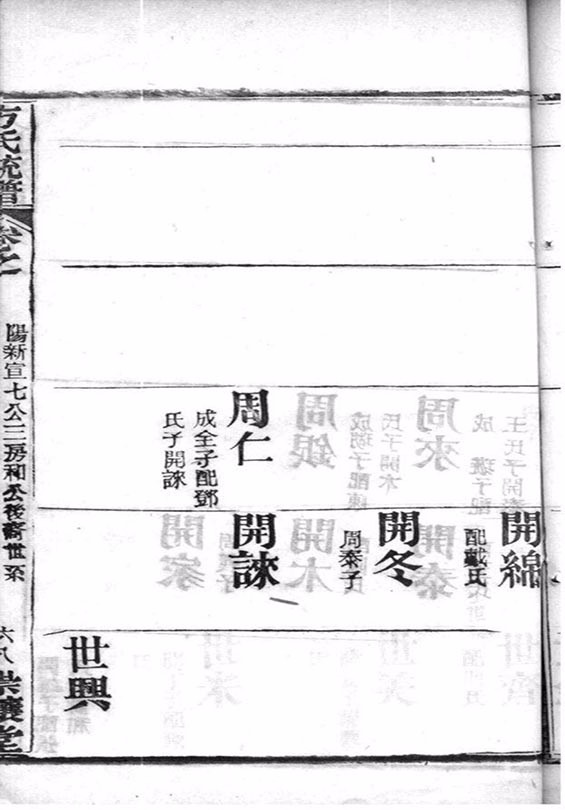 周仁
成全子配鄧
氏子開諫
開綿
配戴氏
開冬
周泰子
開諫
世興
方氏統譜
卷之
陽新宣七公三房和公後裔世系
六八
崇讓堂